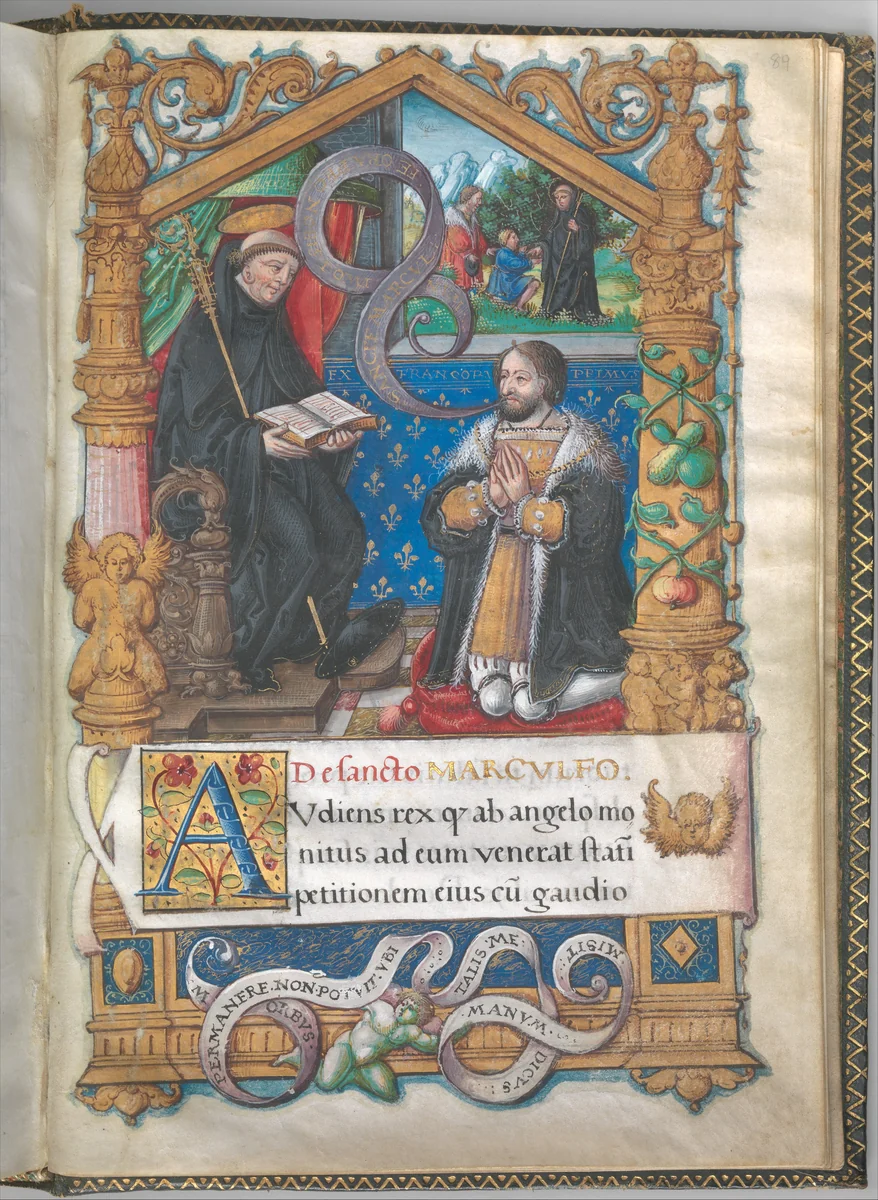 89
SANCTI MARCUL
EX FRANCOR PRIMUS
De sancto MARCVLFO.
AVdiens rex qꝫ ab angelo mo
nitus ad eum venerat statĩ
petitionem eius cũ gaudio
M
ORBVS.
PERMANERE.NON.POTVIT.VBI
TALIS.ME
DICVS:
MANVM.
MISIT.